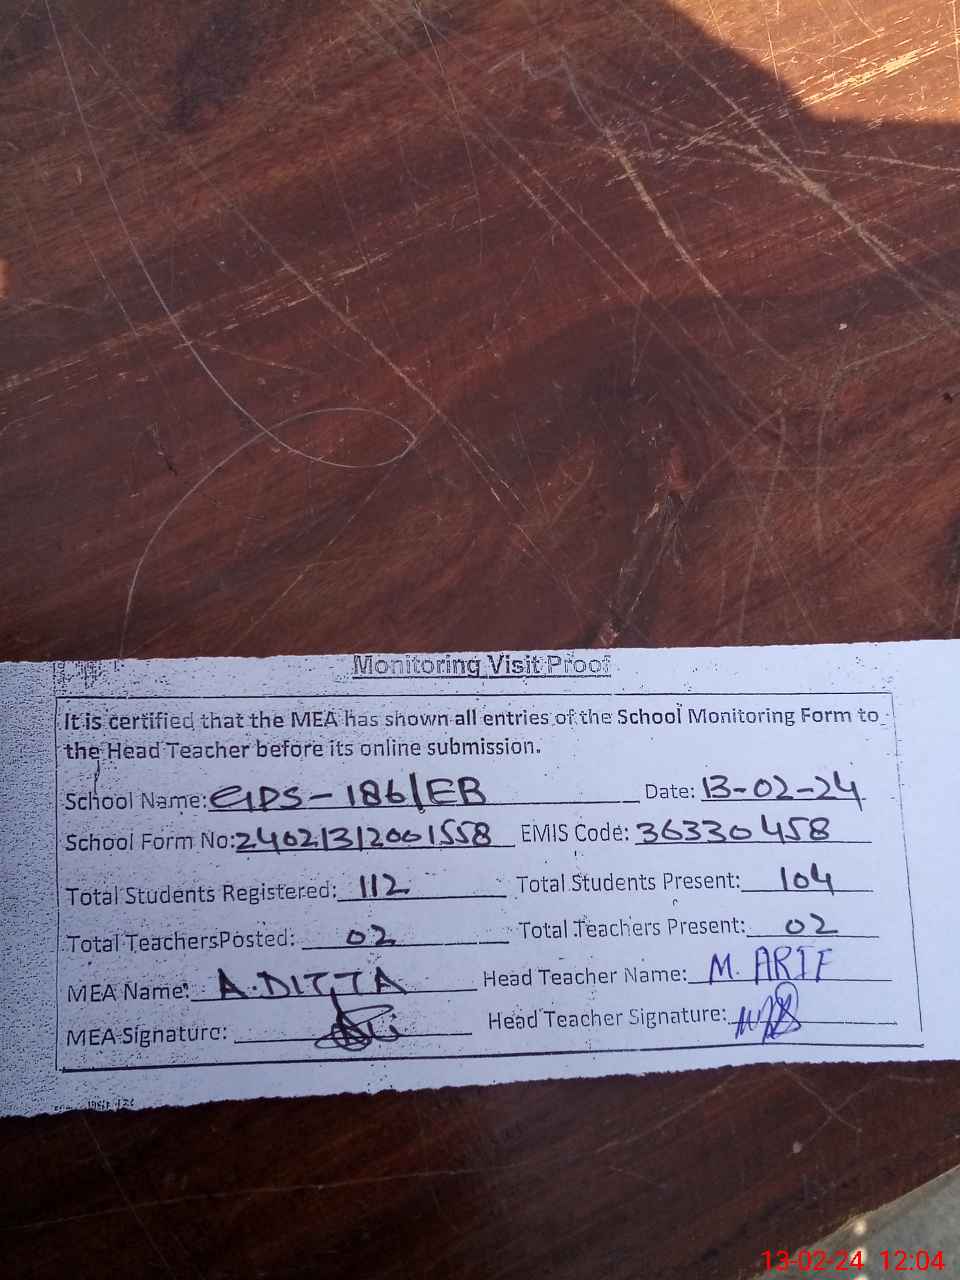 Monitoring Visit Proof
It is certified that the MEA has shown all entries of the School Monitoring Form to
the Head Teacher before its online submission.
School Name: GPS-186/EB Date: 13-02-24
School Form No: 24021312001558 EMIS Code: 36330458
Total Students Registered: 112 Total Students Present: 104
Total TeachersPosted: 02 Total Teachers Present: 02
MEA Name: A.DITTA Head Teacher Name: M. ARIF
MEA Signature: Head Teacher Signature:
13-02-24 12:04